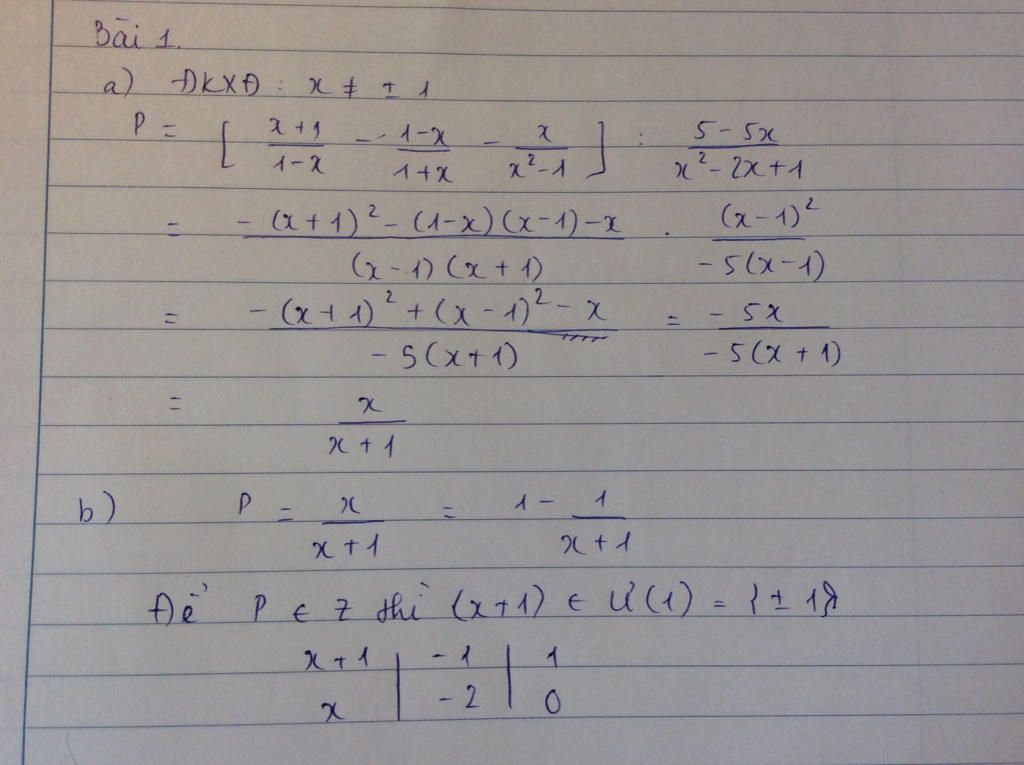 Bài 1.
a) ĐKXĐ : x ≠ ± 1
P = [ (x+1)/(1-x) - (1-x)/(1+x) - x/(x²-1) ] : (5-5x)/(x²-2x+1)
= (-(x+1)² - (1-x)(x-1) - x)/((x-1)(x+1)) . (x-1)²/(-5(x-1))
= (-(x+1)² + (x-1)² - x)/(-5(x+1)) = (-5x)/(-5(x+1))
= x/(x+1)
b) P = x/(x+1) = 1 - 1/(x+1)
Để P ∈ Z thì (x+1) ∈ Ư(1) = {± 1}
x+1 | -1 | 1
x | -2 | 0